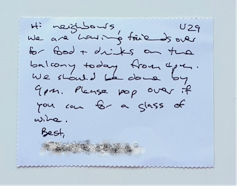 Hi neighbours, U29
We are having friends over
for food + drinks on the
balcony today from 4pm.
We should be done by
9pm. Please pop over if
you can for a glass of
wine.
Best,